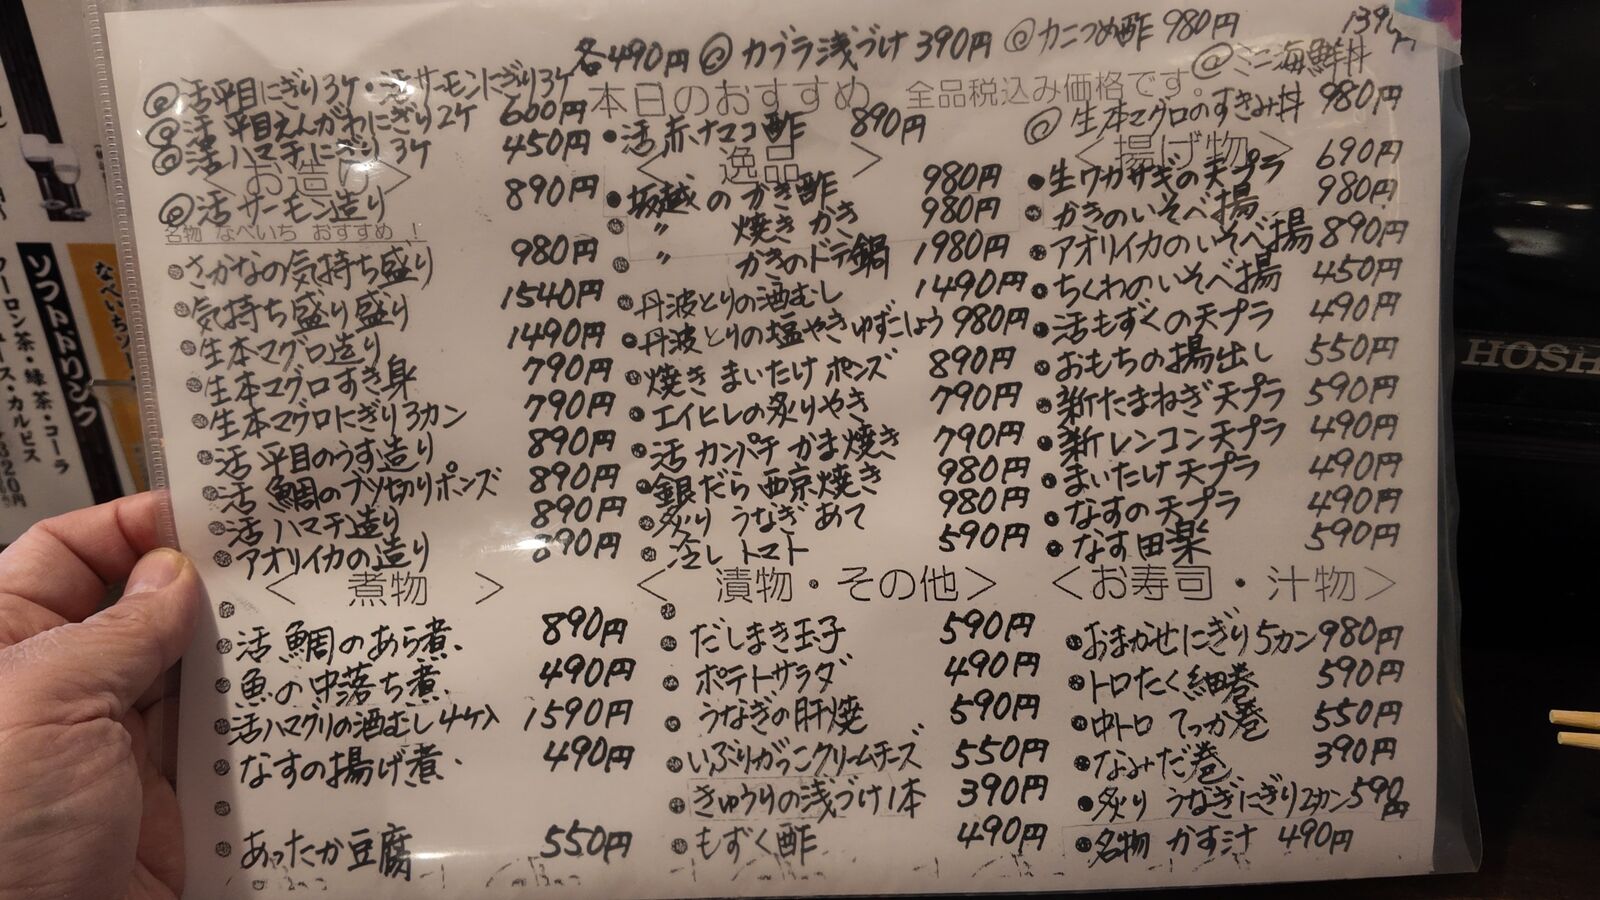 各490円 @カブラ浅づけ 390円 @カニつめ酢 980円
@活平目にぎり3ケ・活サーモンにぎり3ケ
@活平目えんがわにぎり2ケ 600円
@活ハマチにぎり3ケ 450円
本日のおすすめ 全品税込み価格です。
@ミニ海鮮丼
@生本マグロのすきみ丼 980円
<お造り>
@活サーモン造り 890円
名物 なべいち おすすめ!
さかなの気持ち盛り 980円
気持ち盛り盛り 1540円
生本マグロ造り 1490円
生本マグロすき身 790円
生本マグロにぎり3カン 790円
活平目のうす造り 890円
活鯛のブツ切りポンズ 890円
活ハマチ造り 890円
アオリイカの造り 890円
・活赤ナマコ酢 890円
<逸品>
坂越のかき酢 980円
〃 焼きかき 980円
〃 かきのドテ鍋 1980円
丹波とりの酒むし 1490円
丹波とりの塩やきゆずこしょう 980円
焼きまいたけポンズ 890円
エイヒレの炙りやき 790円
活カンパチかま焼き 790円
銀だら西京焼き 980円
炙りうなぎあて 980円
冷しトマト 590円
<揚げ物>
生ワカサギの天プラ 690円
かきのいそべ揚 980円
アオリイカのいそべ揚 890円
ちくわのいそべ揚 450円
活もずくの天プラ 490円
おもちの揚出し 550円
新たまねぎ天プラ 590円
新レンコン天プラ 490円
まいたけ天プラ 490円
なすの天プラ 490円
なす田楽 590円
<煮物>
活鯛のあら煮 890円
魚の中落ち煮 490円
活ハマグリの酒むし4ケ入 1590円
なすの揚げ煮 490円
あったか豆腐 550円
<漬物・その他>
だしまき玉子 590円
ポテトサラダ 490円
うなぎの肝焼 590円
いぶりがっこクリームチーズ 550円
きゅうりの浅づけ1本 390円
もずく酢 490円
<お寿司・汁物>
おまかせにぎり5カン 980円
トロたく細巻 590円
中トロてっか巻 550円
なみだ巻 390円
炙りうなぎにぎり2カン 590円
名物 かす汁 490円
ソフトドリンク
ウーロン茶・緑茶・コーラ
カルピス
320円
なべいち
HOSH